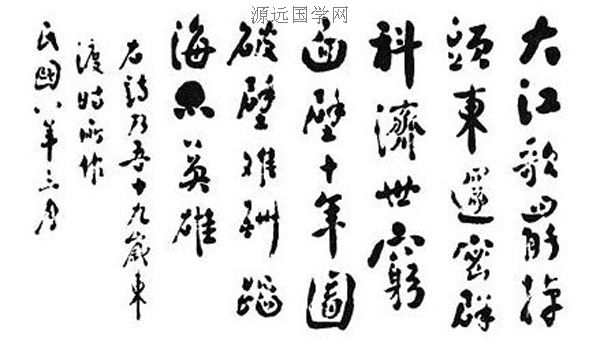 源远国学网
大江歌罷掉
頭東邃密群
科濟世窮
面壁十年圖
破壁難酬蹈
海亦英雄
右詩乃吾十九歲東
渡時所作
民國八年三月